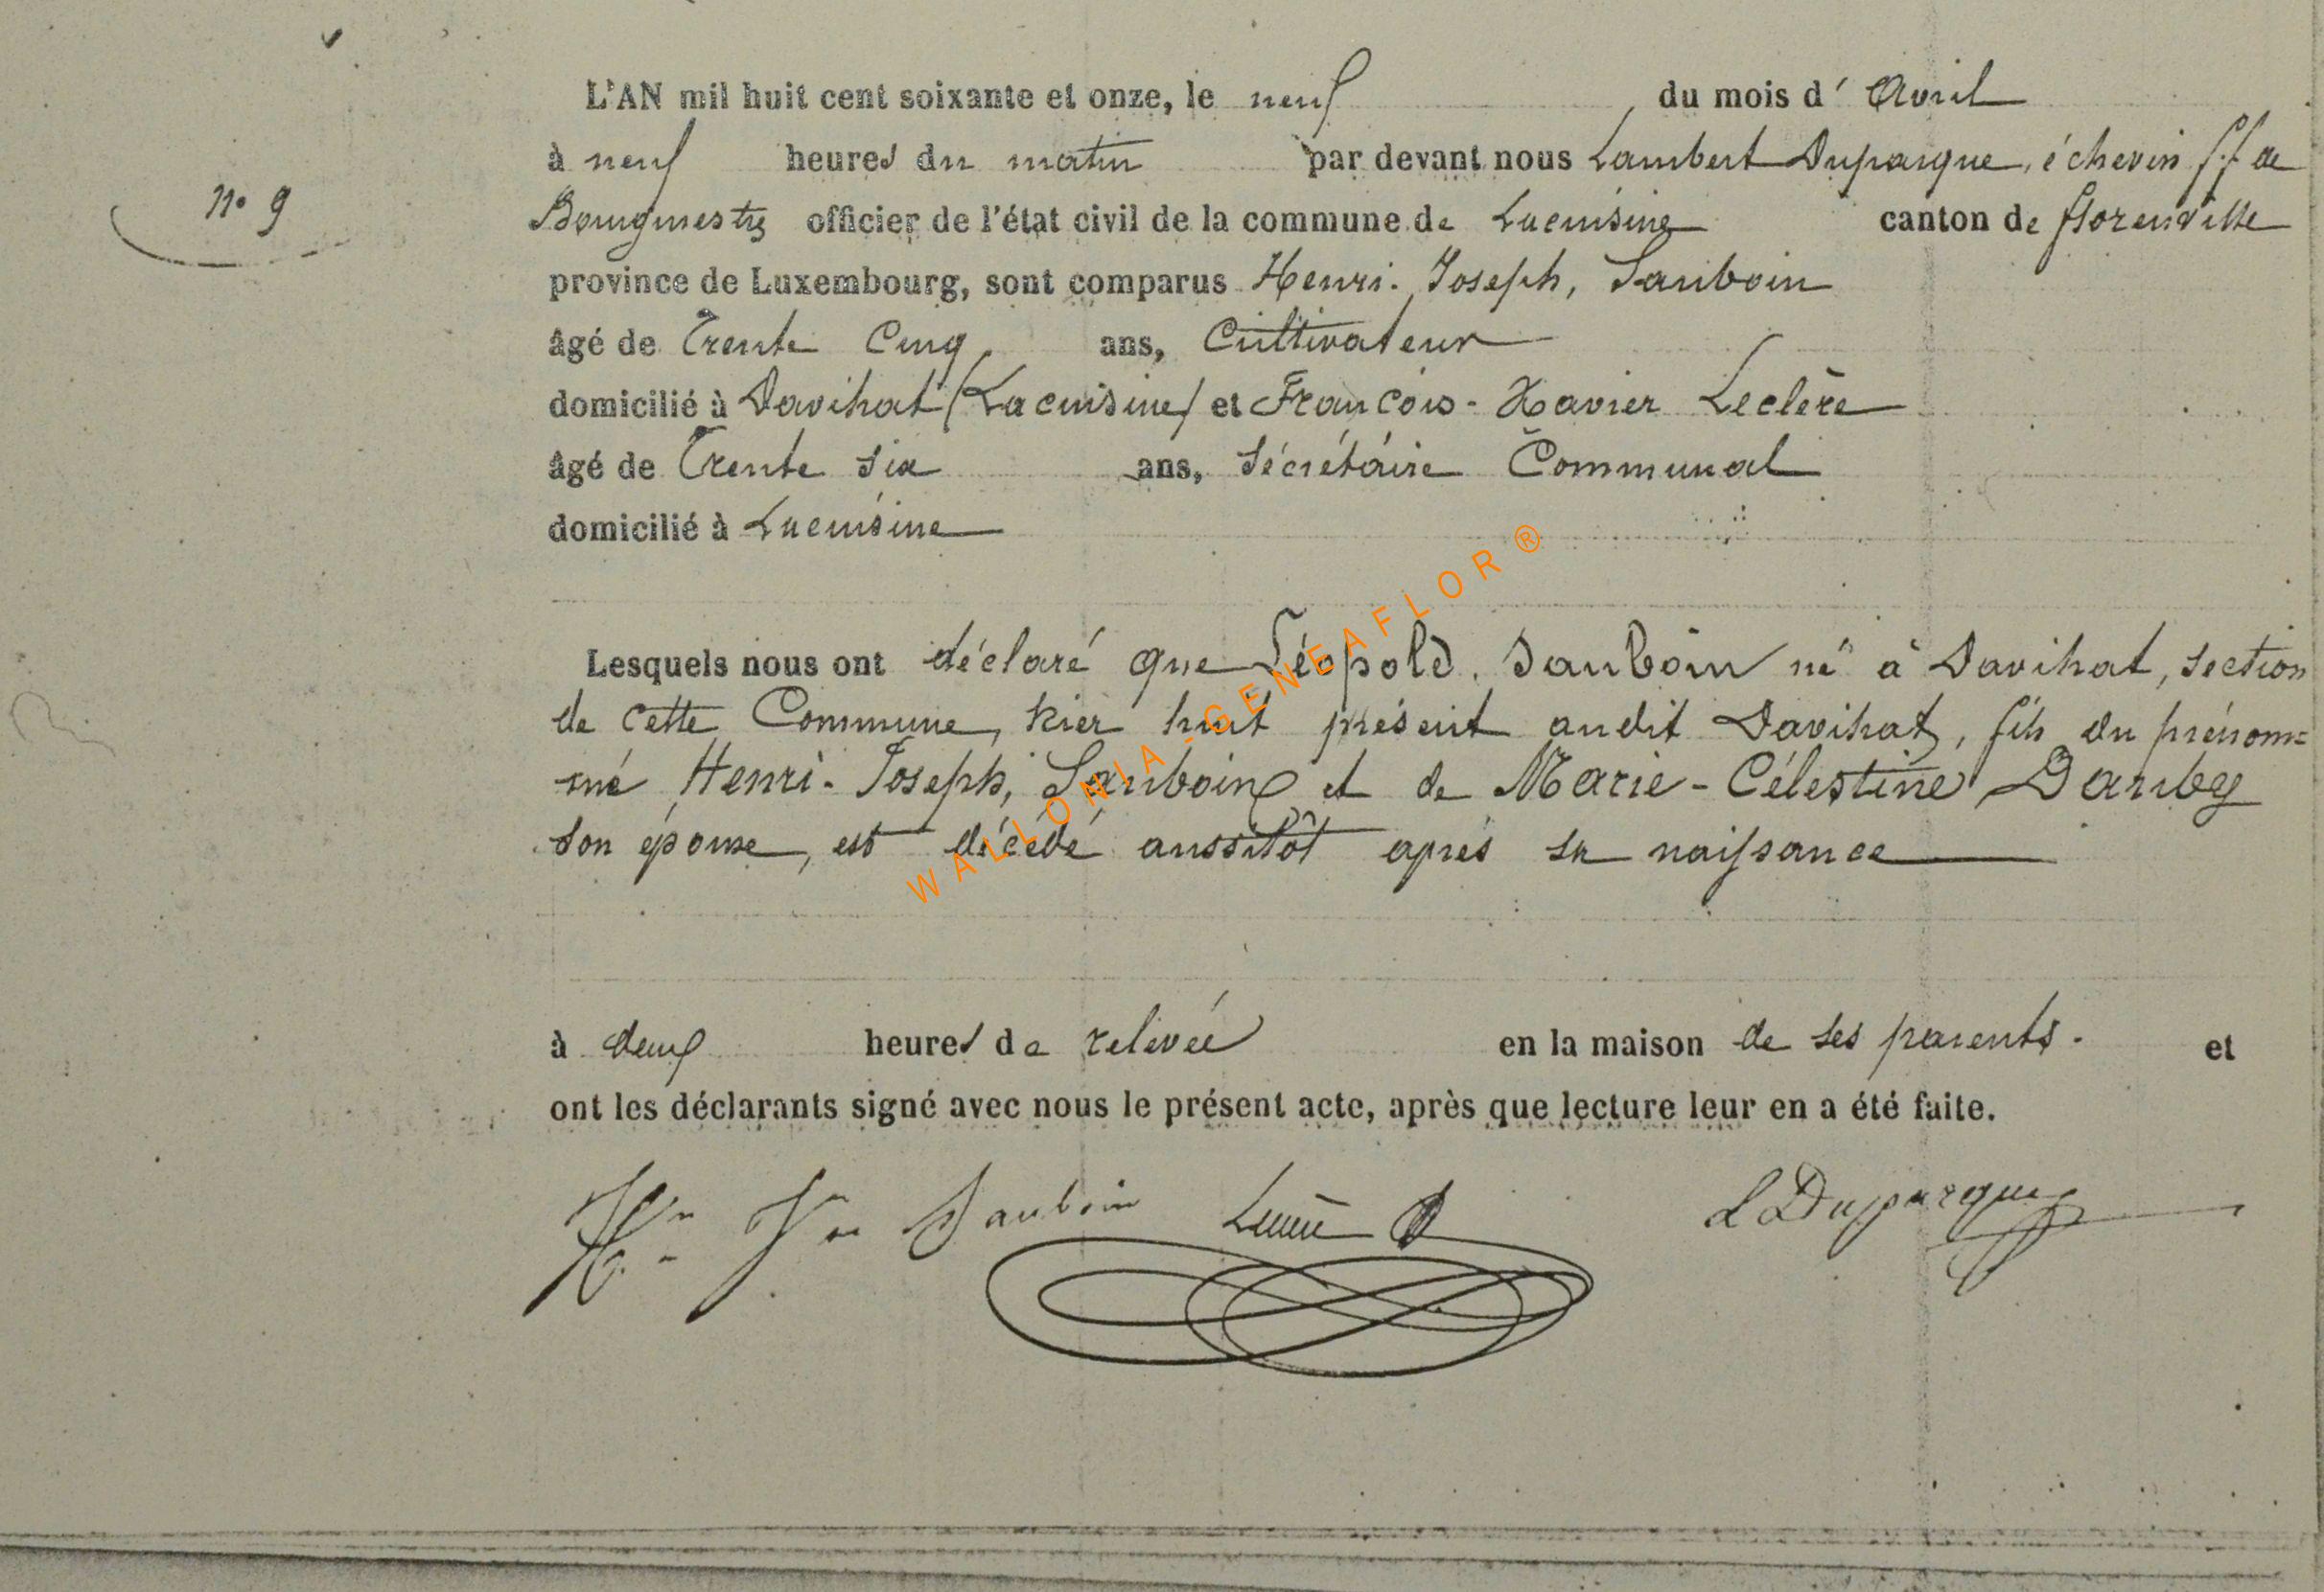 L'AN mil huit cent soixante et onze, le neuf du mois d' Avril
à neuf heures du matin par devant nous Lambert Duparque, échevin f.f de
n° 9
Bourgmestre officier de l'état civil de la commune de Lacuisine canton de florenville
province de Luxembourg, sont comparus Henri-Joseph, Sauboin
âgé de Trente Cinq ans, Cultivateur
domicilié à Davihat (Lacuisine) et François-Xavier Leclère
âgé de Trente six ans, Sécrétaire Communal
domicilié à Lacuisine
Lesquels nous ont déclaré que Léopold. Sauboin né à Davihat, section
de cette Commune, hier huit présent audit Davihat, fils du prénom=
mé Henri-Joseph, Sauboin et de Marie-Célestine Dauby
son épouse, est décédé aussitôt après sa naissance
WALLONIA-GENEAFLOR®
à deux heures de relevée en la maison de ses parents. et
ont les déclarants signé avec nous le présent acte, après que lecture leur en a été faite.
Hri Jh Sauboin Leclère L Duparque